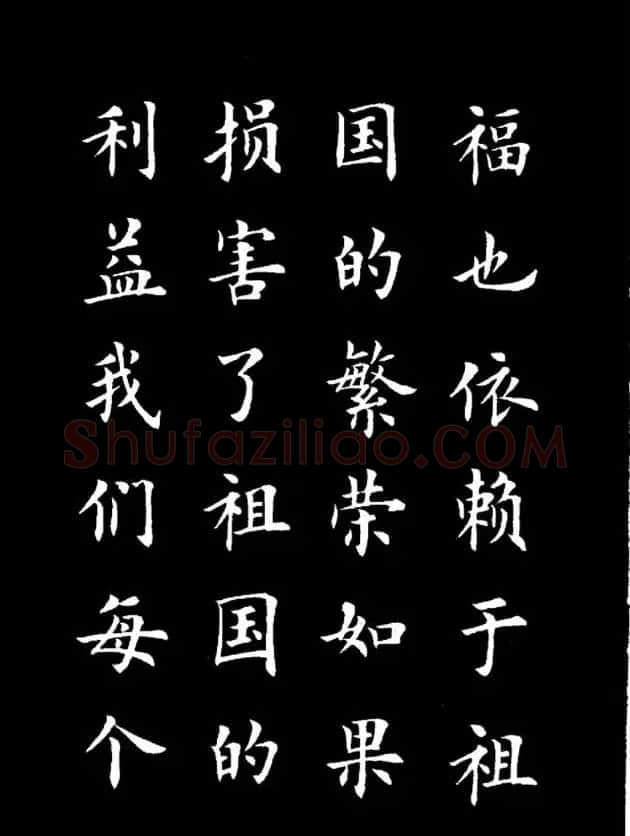 福也依赖于祖
国的繁荣如果
损害了祖国的
利益我们每个
Shufaziliao.COM